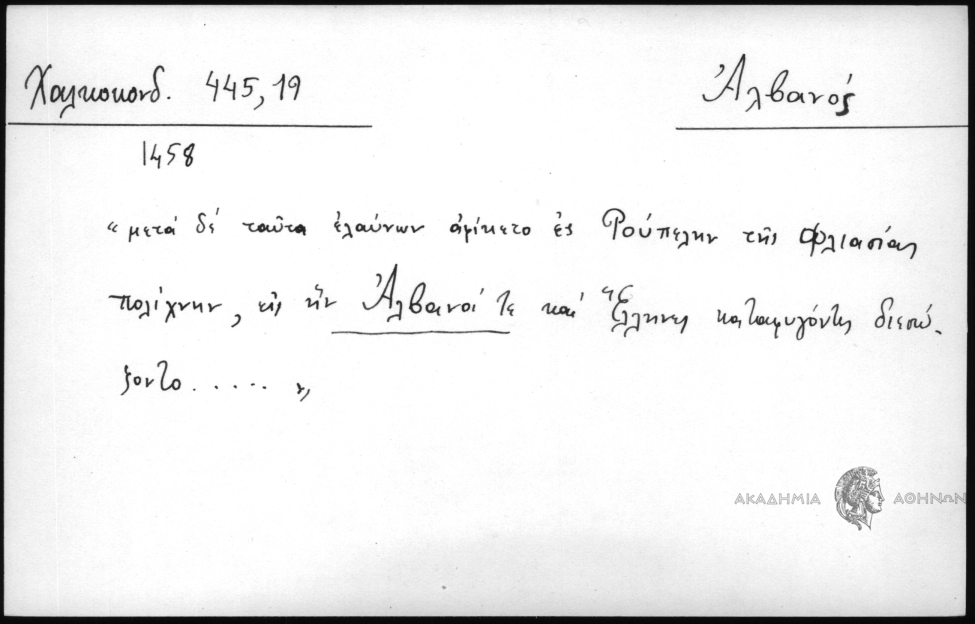 Χαλκοκονδ. 445,19
Ἀλβανός
1458
«μετά δέ ταῦτα ἐλαύνων ἀφίκετο ἐς Ῥούπελην τῆς Φλιασίας
πολίχνην, εἰς ἥν Ἀλβανοί τε καί Ἕλληνες καταφυγόντες διεσώ-
ζοντο.....»
ΑΚΑΔΗΜΙΑ ΑΘΗΝΩΝ